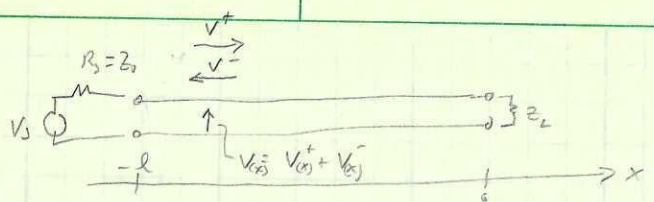 V⁺
V⁻
Rs = Z₀
Vs
Z_L
V(x) = V(x)⁺ + V(x)⁻
-l
x